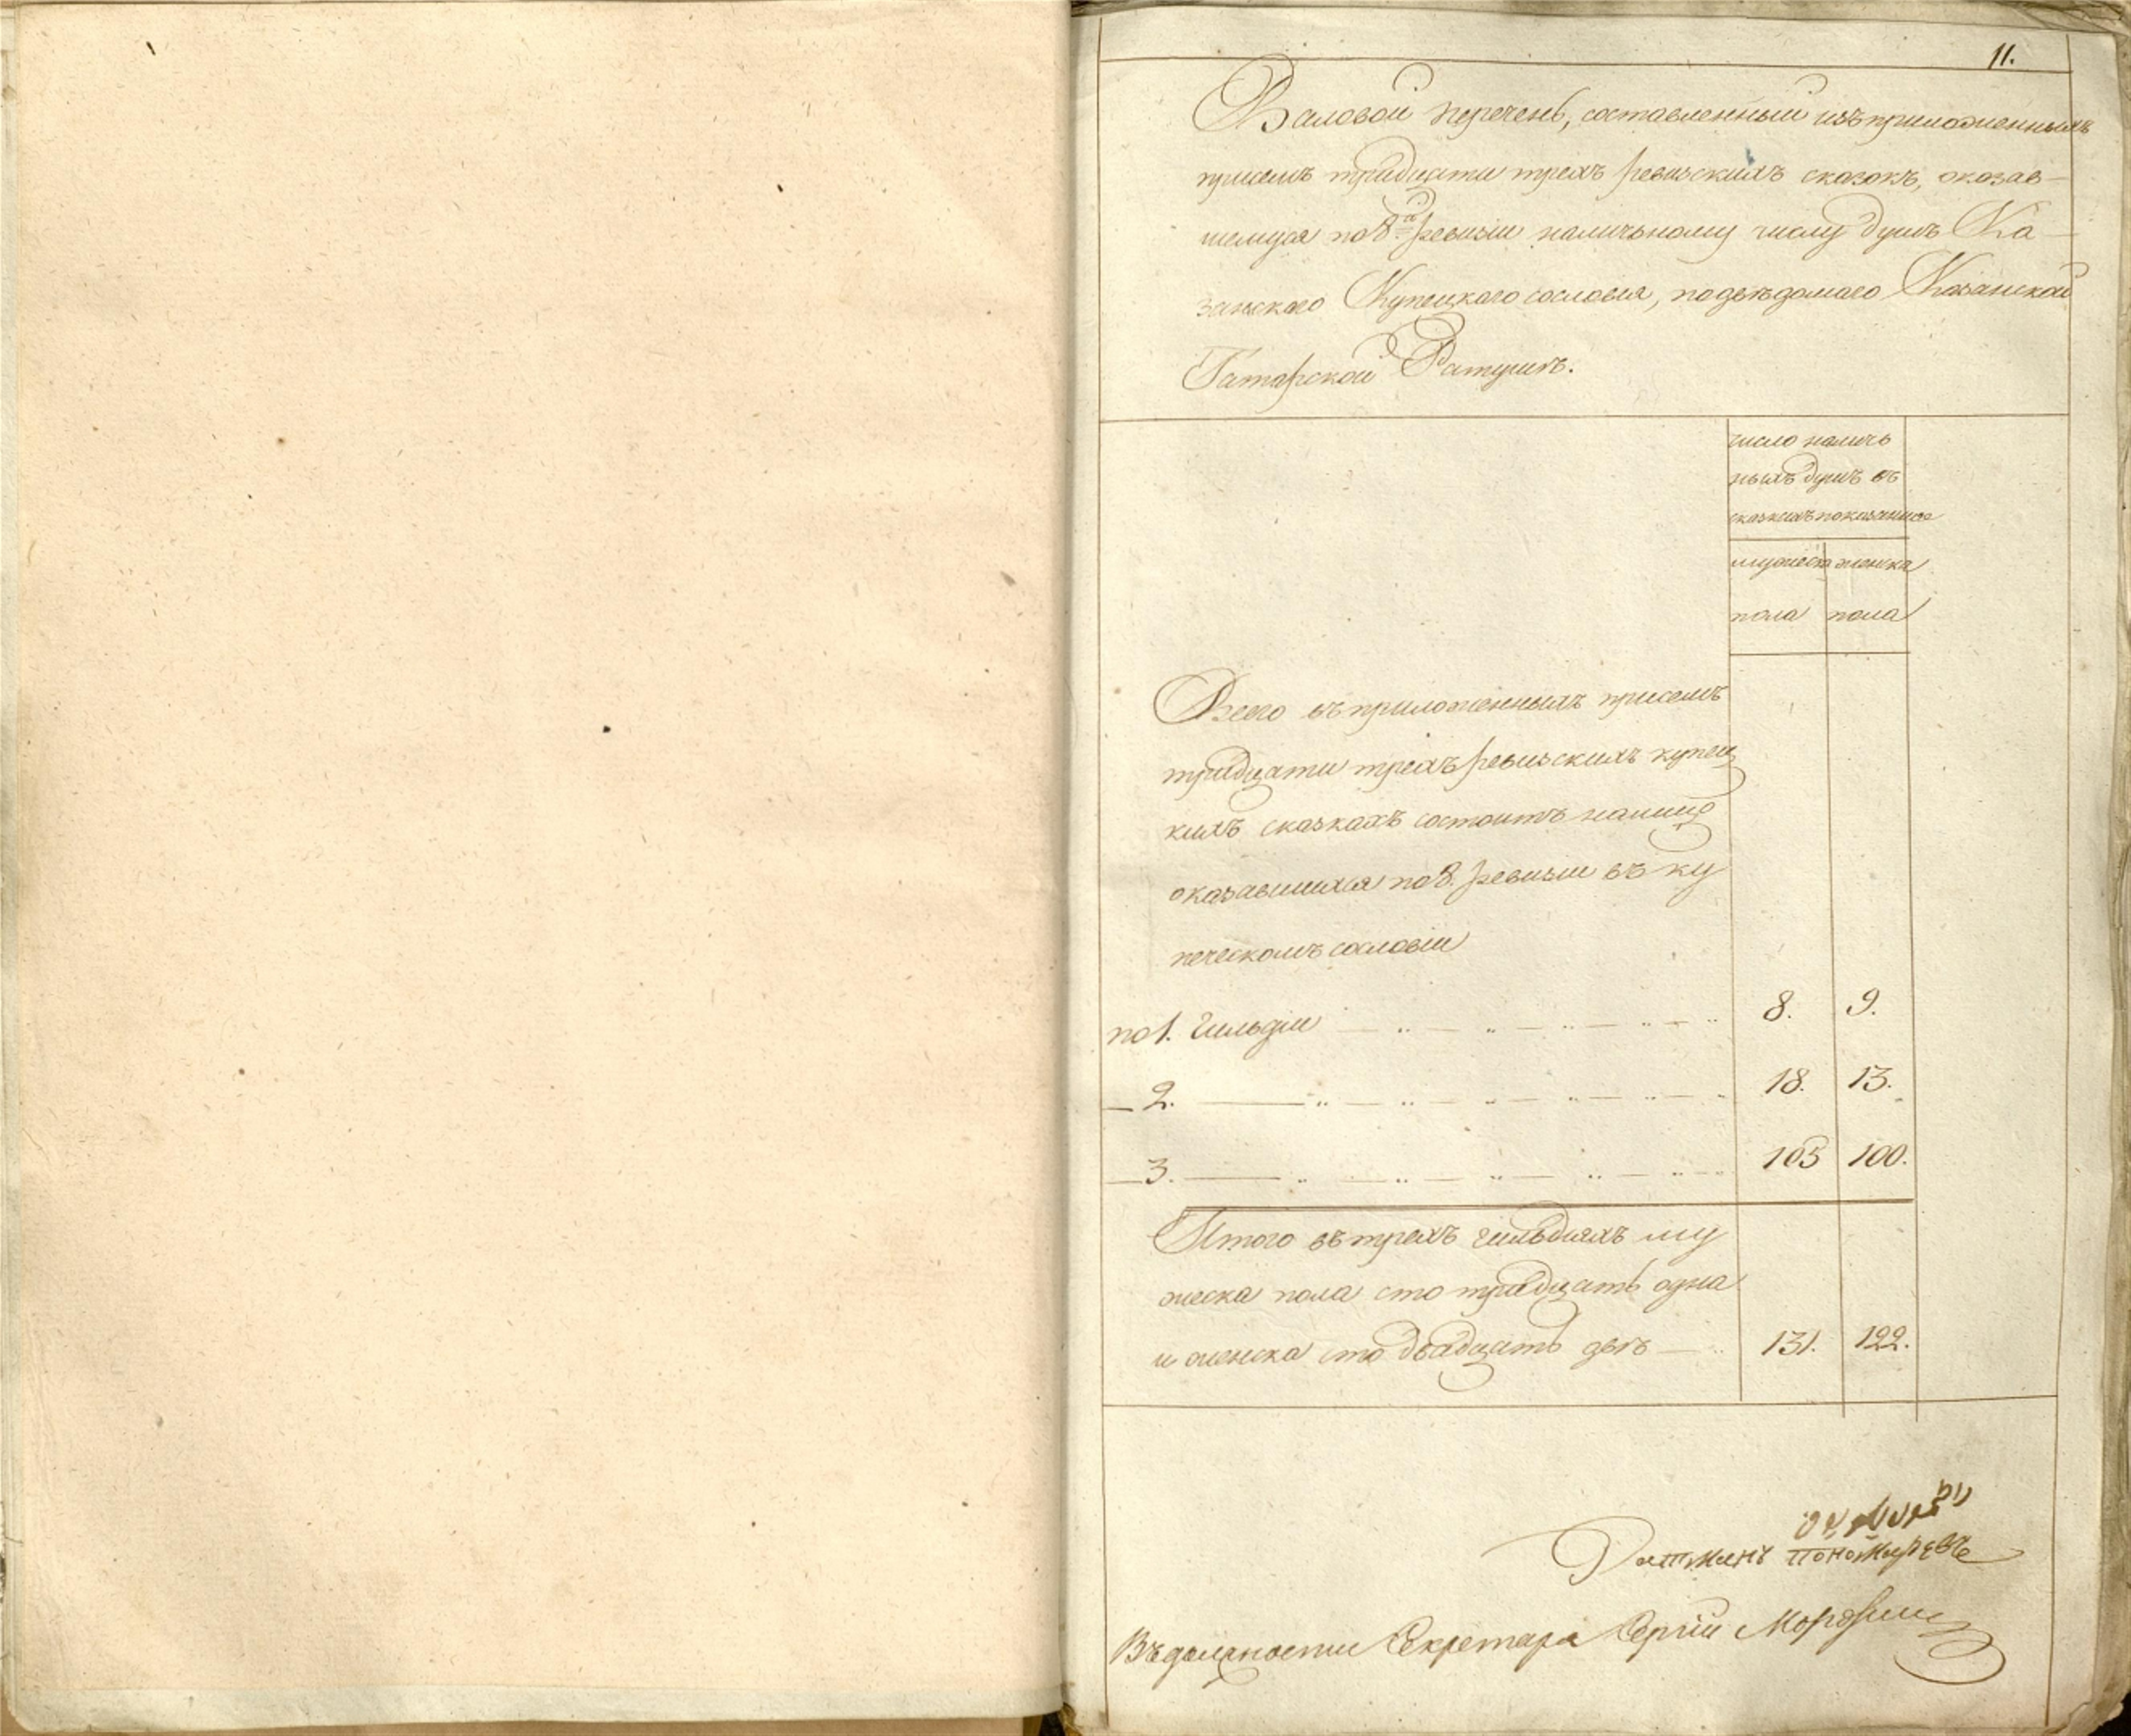 11.
Валовой перечень, составленный изъ приложенныхъ
присемъ тридцати трехъ ревизскихъ сказокъ, оказав-
шемуся по 8й ревизии наличьному числу душъ Ка-
занского Купецкого сословия, подведомаго Казанской
Татарской Ратушѣ.
число наличь
ныхъ душъ въ
сказкахъ показанное
мужеска женска
пола пола
Всего въ приложенныхъ присемъ
тридцати трехъ ревизскихъ купец
кихъ сказкахъ состоитъ налицо
оказавшихся по 8. ревизии въ ку
печескомъ сословии
по 1. Гильдии 8. 9.
— 2. — 18. 13.
— 3. — 105 100.
Итого въ трехъ гильдияхъ му
жеска пола сто тридцать одна
и женска сто двадцать две — 131. 122.
Ратманъ Пономаревъ
Въ должности Секретаря Сергий